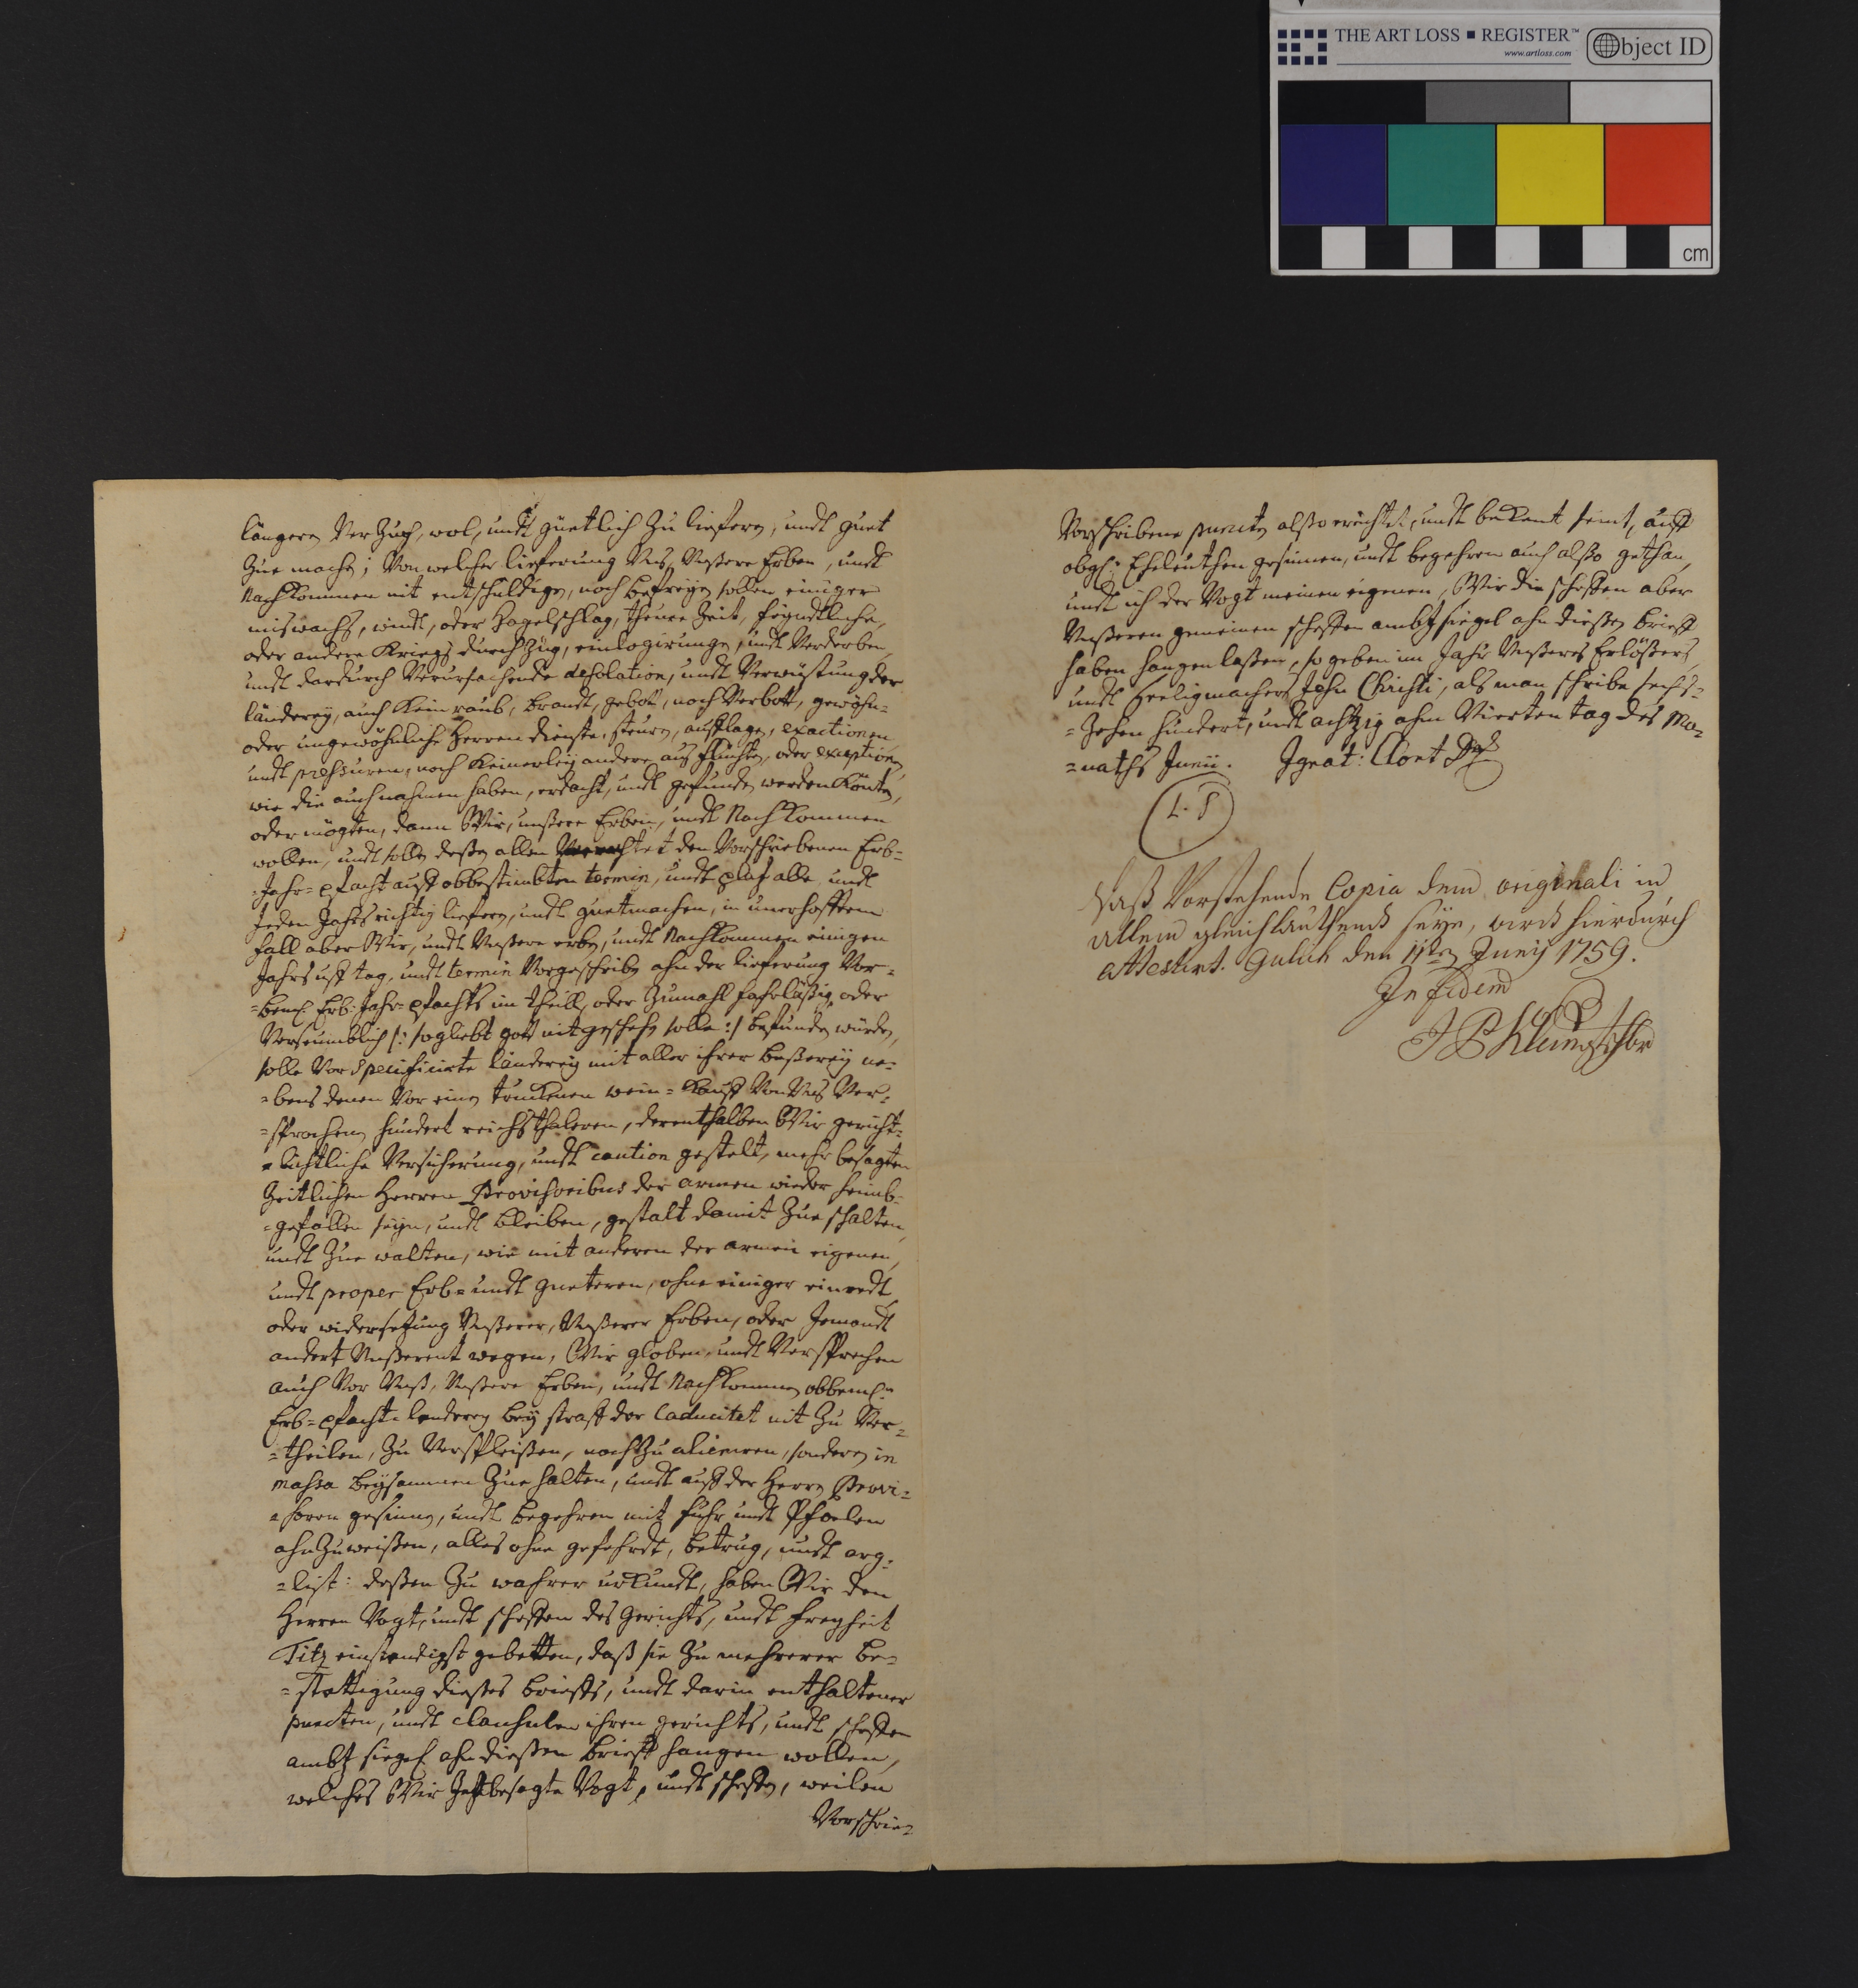 THE ART LOSS ■ REGISTER™
www.artloss.com
Object ID
cm
längeren Verzuch, wol, undt güetlich zu lieferen, undt guet
Zue machen; Von welcher lieferung Uns, Unßere Erben, undt
Nachkommen nit entschuldigen, noch befreÿen sollen einiger
miswachs, windt, oder Hagelschlag, theure Zeit, feÿndtliche,
oder andere Kriegs durchzüg, einlogirungen, undt Verderben,
undt dardurch Verursachende desolation, undt Verwüstung der
ländereÿ, auch Kein raub, brandt, gebott, noch Verbott, gewöhn=
oder ungewöhnliche Herren dienste, steuren, aufflagen, exactionen
undt pressuren, noch Keinerleÿ andere ausflüchten, oder exceptionen,
wie die auch nahmen haben, erdacht, undt gefunden werden Könten,
oder mögten, dann Wir, unßere Erben, undt Nachkommen
wollen, undt sollen deßen allen den Vorschriebenen Erb=
=Jahr=pfacht auff obbestimbten termin, undt platz alle, undt
Jeden Jahrs richtig lieferen, undt guetmachen, in unverhofften
fall aber Wir, undt Unßere erben, undt Nachkommen einigen
Jahrs uff tag, undt termin Vorgeschriben ahn der lieferung Vor=
=bem: Erb=Jahr=pfachts im theill, oder Zumahl fahrläßig, oder
Verseumblich /: so geliebt gott nit geschehen solle :/ befunden würden,
solle Vor specificirte länderey mit aller ihrer beßereÿ ne=
=bens denen Vor einen trucKenen wein=Kauff Von Uns Ver=
=sprochenen hundert reichsthaleren, derenthalben Wir gericht=
=lichtliche Versicherung, undt caution gestelt, mehr besagten
Zeitlichen Herren Provisoribus der armen wieder heimb=
=gefallen seÿn, undt bleiben, gestalt damit Zue schalten,
undt Zue walten, wie mit anderen der armen eigenen,
undt proper Erb= undt gueteren, ohne einiger einredt,
oder widersetzung Unßerer, Unßerer Erben, oder Jemandt
andert Unßerent wegen, Wir globen, undt Versprechen
auch Vor Unß, Unßere Erben, undt Nachkommen obbem:
Erb=pfacht=länderey beÿ straff der Caducitet nit Zu Ver=
=theilen, Zu Verspleißen, noch Zu alieniren, sonderen in
massa beÿsammen Zue halten, undt auff der Herren Provi=
=soren gesinnen, undt begehren mit fuhr undt Pfoelen
ahnZuweißen, alles ohne gefehrdt, betrug, undt arg=
=list: deßen Zu wahrer urKundt, haben Wir den
Herren Vogt, undt scheffen des Gerichts, undt freyheit
Titz einstendigst gebetten, daß sie Zu mehrerer be=
=stettigung dießes brieffs, undt darin enthaltener
puncten, undt clausulen ihren gerichts, undt scheffen
ambtz siegel ahn dießen brieff hangen wollen,
welches Wir Jetztbesagte Vogt, undt scheffen, weilen
Vorschrie=
Vorschribene puncten alßo erichtet, undt beKent seint, auff
obgl: Eheleuthen gesinnen, undt begehren auch alßo gethan,
undt ich der Vogt meinen eigenen, Wir die scheffen aber
Unßeren gemeinen scheffen ambtz siegel ahn dießen brieff
haben hangen laßen, so geben im Jahr Unßeres Erlößers,
undt Heeligmachers Jesu Christi, als man schribe sechs=
=Zehen hundert, undt achtzig ahm Vierten tag des Mo=
=naths Junii. Ignat:
L. S
Daß Vorstehende Copia dem originali in
allem gleichlauthendt seÿe, wirdt hierdurch
attestirt. Gulich den 11ten Junÿ 1759.
In fidem